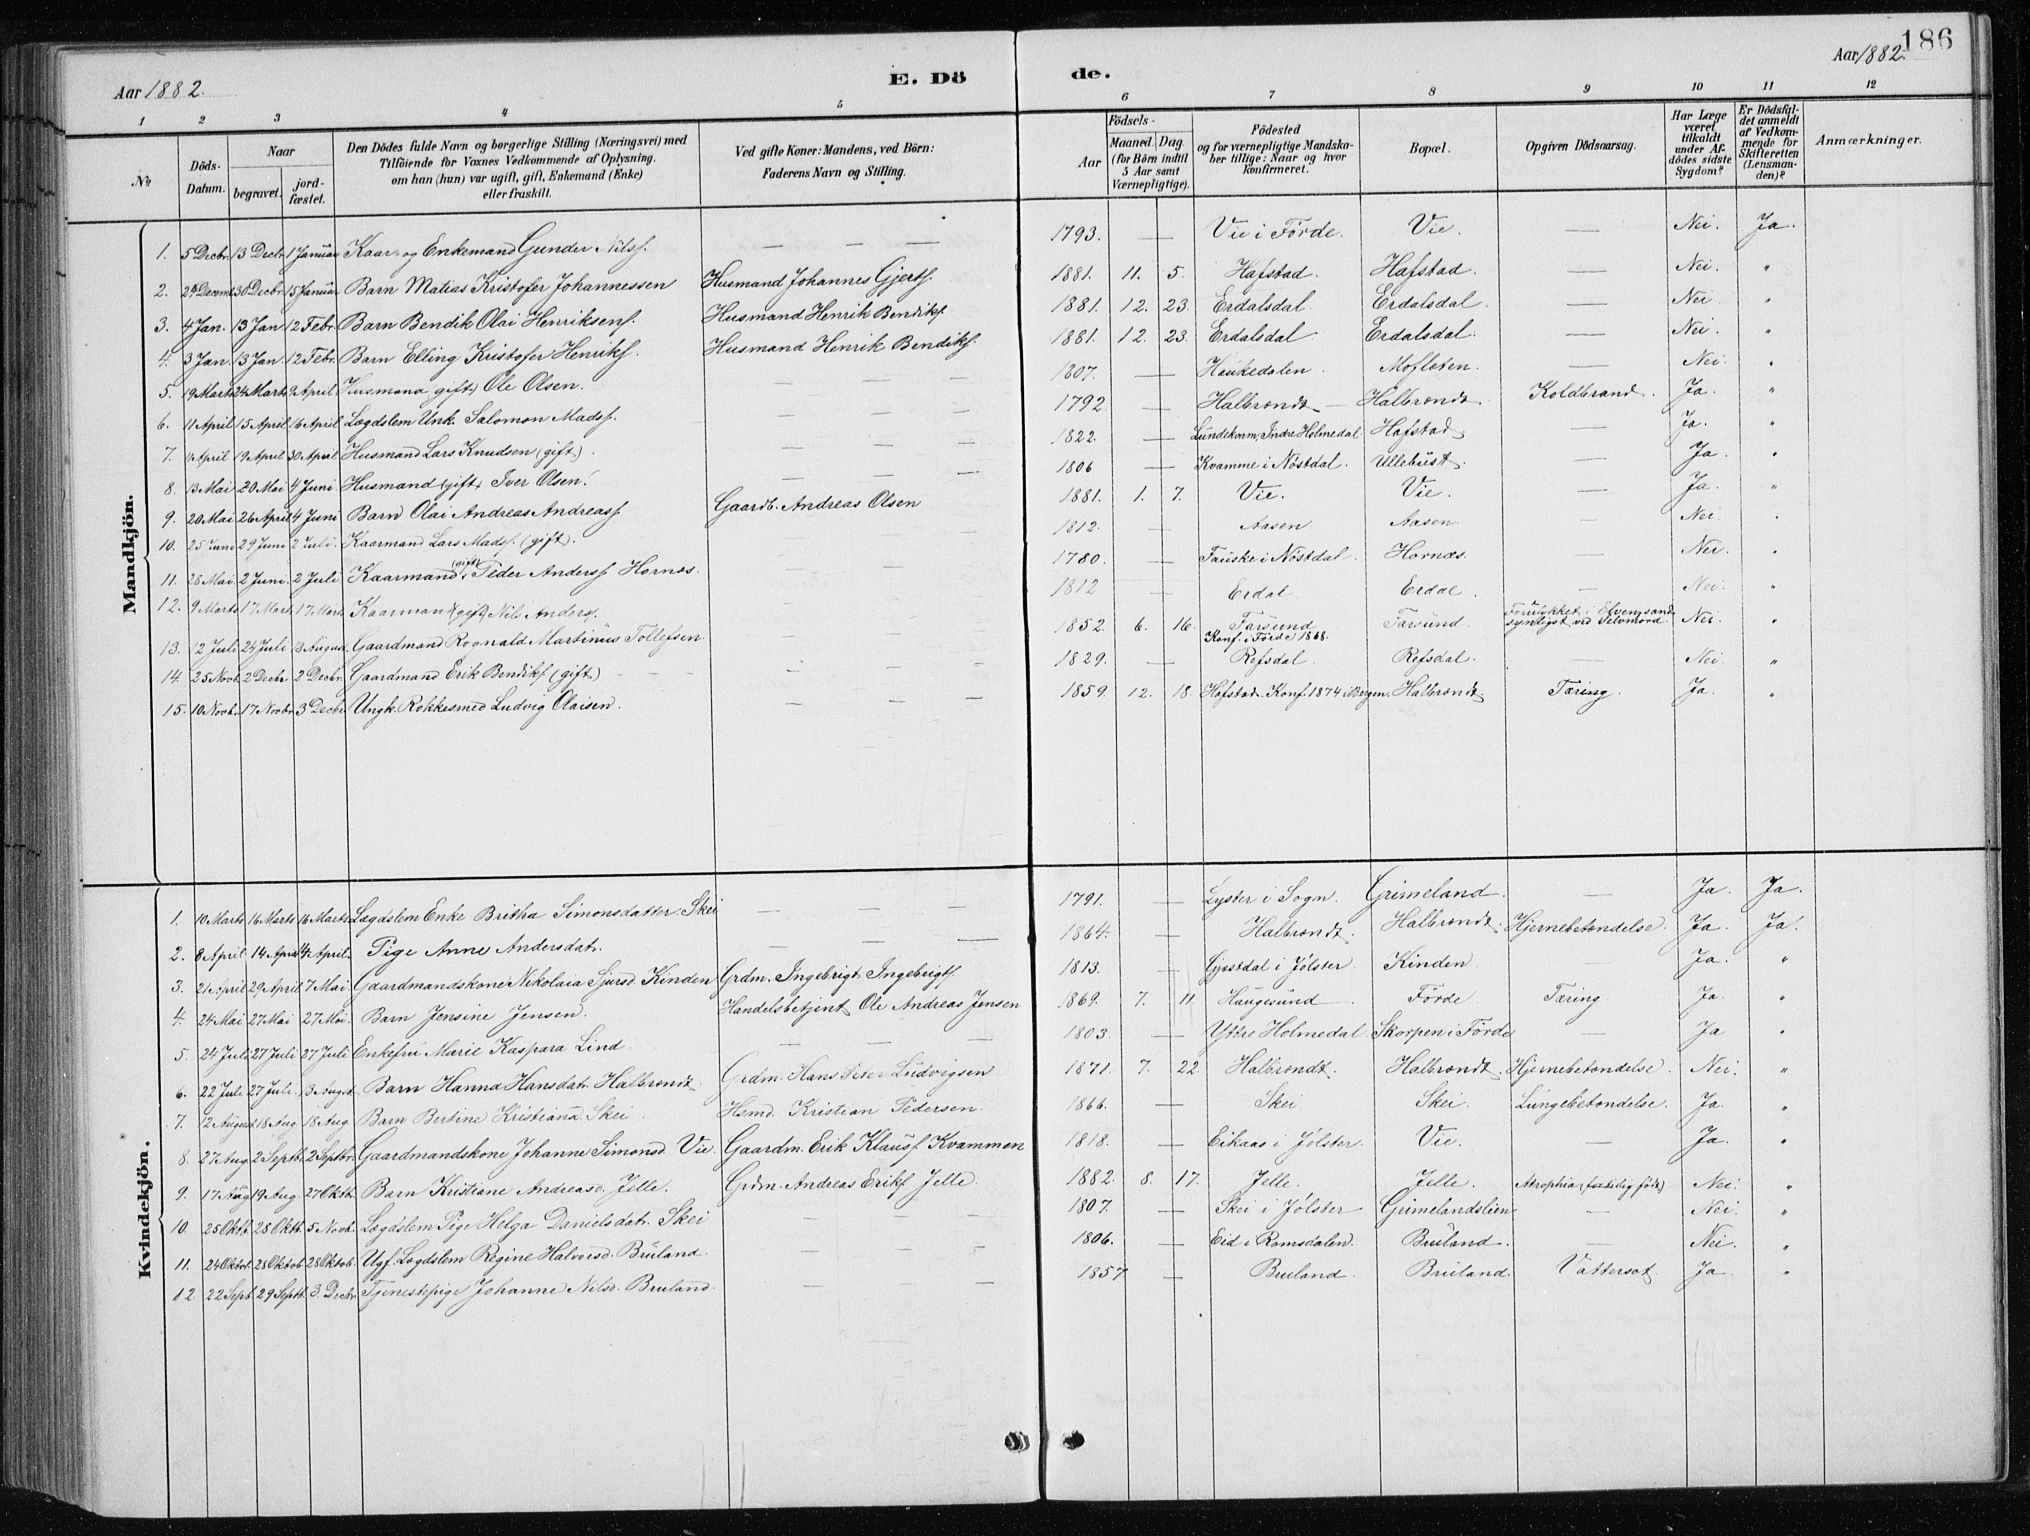 186
Aar 1882.
E. Dö
de.
Aar 1882.
1 2 3 4 5 6 7 8 9 10 11 12
No
Döds-Datum.
Naar
begravet.
jordfæstet.
Den Dödes fulde Navn og borgerlige Stilling (Næringsvei) med
Tilföiende for Voxnes Vedkommende af Oplysning,
om han (hun) var ugift, gift, Enkemand (Enke)
eller fraskilt.
Ved gifte Koner: Mandens, ved Börn:
Faderens Navn og Stilling.
Födsels-
Aar
Maaned. Dag.
(for Börn indtil
5 Aar samt
Værnepligtige).
Födested
og for værnepligtige Mandskaber tillige: Naar og hvor
konfirmeret.
Bopæl.
Opgiven Dödsaarsag.
Har Læge
været
tilkaldt
under Afdödes sidste
Sygdom?
Er Dödsfaldet anmeldt
af Vedkommende for
Skifteretten
(Lensmanden)?
Anmærkninger.
Mandkjön.
1. 5 Decbr. 13 Decbr. 1 Januar Kaar- og Enkemand Gunder Nilss. — — — 1793. — Vie i Förde. Vie. — Nei. Ja.
2. 24 Decemb 30 Decbr. 15 Januar Barn Matias Kristofer Johannessen Husmand Johannes Gjerts. 1881. 11. 5. Hafstad. Hafstad. — Nei. "
3. 4 Jan. 13 Jan 12 Febr. Barn Bendik Olai Henriksens. Husmand Henrik Bendiks. 1881. 12. 23. Erdalsdal. Erdalsdal. — Nei "
4. 3 Jan. 13 Jan. 12 Febr. Barn Elling Kristofer Henriks. Husmand Henrik Bendiks. 1881. 12. 23. Erdalsdal. Erdalsdal. — Nei. "
5. 19 Marts 24 Marts 9 April Husmand (gift) Ole Olsen. — — — 1807. — Haukedalen. Mofloten. — Nei. "
6. 11 April 15 April 16 April Lægdslem Unk. Salomon Madss. — — — 1792. — Halbrændt — Halbrændt. Koldbrand. Ja. "
7. April 19 April 30 April Husmand Lars Knudsen (gift). — — — 1822. — Lundekvam, Indre Holmedal. Hafstad. — Ja. "
8. 13 Mai 20 Mai 4 Juni Husmand (gift) Iver Olsen. — — — 1806 — Kvamme i Nöstdal. Ullebust. — Ja. "
9. 20 Mai 26 April 4 Juni Barn Olai Andreas Andreass. Gaardb. Andreas Olsen 1881. 1. 7. Vie. Vie. — Ja. "
10. 25 Juni 29 Juni 2 Juli. Kaarmand Lars Madss. (gift). — — — 1812. — Aasen Aasen. — Nei "
11. 28 Mai. 2 Juni. 2 Juli Kaarmand (gift) Peder Anderss Hornæs. — — — 1780. — Fauske i Nöstdal. Hornæs. — Nei. "
12. 9 Marts 17 Marts. 17 Marts. Kaarmand (gift) Nils Anders. — — — 1812 — Erdal. Erdal. — Nei. "
13. 12 Juli 24 Juli 13 August Gaardmand Rognald Martinus Tollefsen. — — — 1852. 6. 16. Farsund Konf. i Förde 1868. Farsund. Forulykket i Elven, sandsynligst ved Selvmord. Nei. "
14. 25 Novb. 2 Decbr. 2 Decbr. Gaardmand Erik Bendiks. (gift) — — — 1829. — Refsdal. Refsdal. — Nei. "
15. 10 Novbr. 17 Novbr. 3 Decbr. Ungk. Rokkesmed Ludvig Olaisen. — — 1859. 12. 18. Hafstad. Konf. 1874 i Bergen. Halbrændt. Tæring. Ja. "
Kvindekjön.
1. 10 Marts 16 Marts 16 Marts Lægdslem Enke Britha Simonsdatter Skei — — — 1791. — Lyster i Sogn. Grimeland. — Ja. Ja.
2. 8 April 14 April 14 April. Pige Anne Andersdat. — — — 1864. — Halbrændt. Halbrændt. Hjernebetændelse. Ja. Ja.
3. 21 April 29 April 7 Mai. Gaardmandskone Nikolaia Sjursd Kinden Grdm. Ingebrigt Ingebrigts. 1813. — Gjestdal i Jølster. Kinden. — Ja. "
4. 24 Mai 27 Mai 27 Mai. Barn Jensine Jensen. Handelsbetjent Ole Andreas Jensen 1869. 7. 11. Haugesund. Förde Tæring. Ja. "
5. 24 Juli 27 Juli 27 Juli Enkefru Marie Kaspara Lind. — — — 1803. — Yttre Holmedal Skorpen i Förde — Ja "
6. 22 Juli 27 Juli. 13 August. Barn Hanna Hansdat. Halbrændt. Grdm. Hans Peter Ludvigsen 1871. 7. 22. Halbrændt. Halbrændt. Hjernebetændelse. Nei. "
7. 12 August 18 Aug. 18 Aug. Barn Bertine Kristiansd. Skei. Hsmd. Kristian Pedersen. 1866. — Skei Skei. Lungebetændelse. Ja. "
8. 27 Aug. 2 Septb. 2 Septbr. Gaardmandskone Johanne Simonsd Vie. Gaardm. Erik Klauss. Kvammen 1818. — Eikaas i Jølster. Vie. — Ja. "
9. 17 Aug. 19 Aug. 27 Oktb. Barn Kristiane Andreasd. Jelle. Grdm. Andreas Eriks. Jelle. 1882. 8. 17. Jelle. Jelle. Atrophia (for tidlig födt) Nei. "
10. 25 Oktb. 28 Oktb. 5 Novb. Lægdslem Pige Helga Danielsdat. Skei — — — 1807. — Skei i Jølster Grimelandslien — Nei. "
11. 24 Oktob. 28 Oktob. 28 Oktob. Ugf. Lægdslem Regine Halvorsd. Bruland. — — — 1806. — Eid i Romsdalen. Bruland. — Nei. "
12 22 Septb. 29 Septb. 3. Decbr. Tjenestepige Johanne Nilsd. Bruland. — — — 1857 — Bruland. Bruland. Vattersot. Ja. "